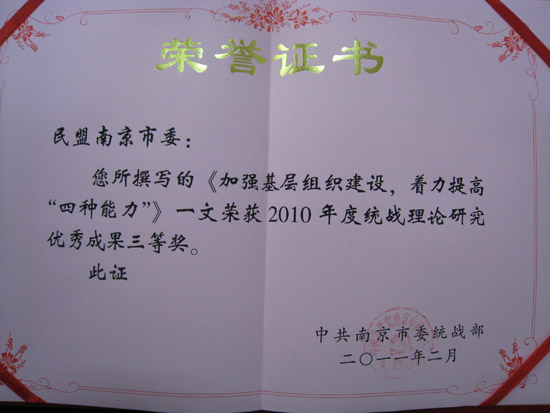 荣誉证书
民盟南京市委：
您所撰写的《加强基层组织建设，着力提高
“四种能力”》一文荣获2010年度统战理论研究
优秀成果三等奖。
此证
中共南京市委统战部
二〇一一年二月